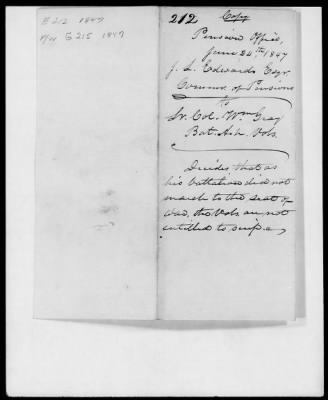 E 212 1847
G 215 1847
212 Copy
Pension Office,
June 24th, 1847
J. L. Edwards Esqr.
Commr. of Pensions
to
Lt. Col. Wm Gray
Bat. Ark. Vols.
Decides that as
his battalion did not
march to the seat of
war, the Vols are not
entitled to